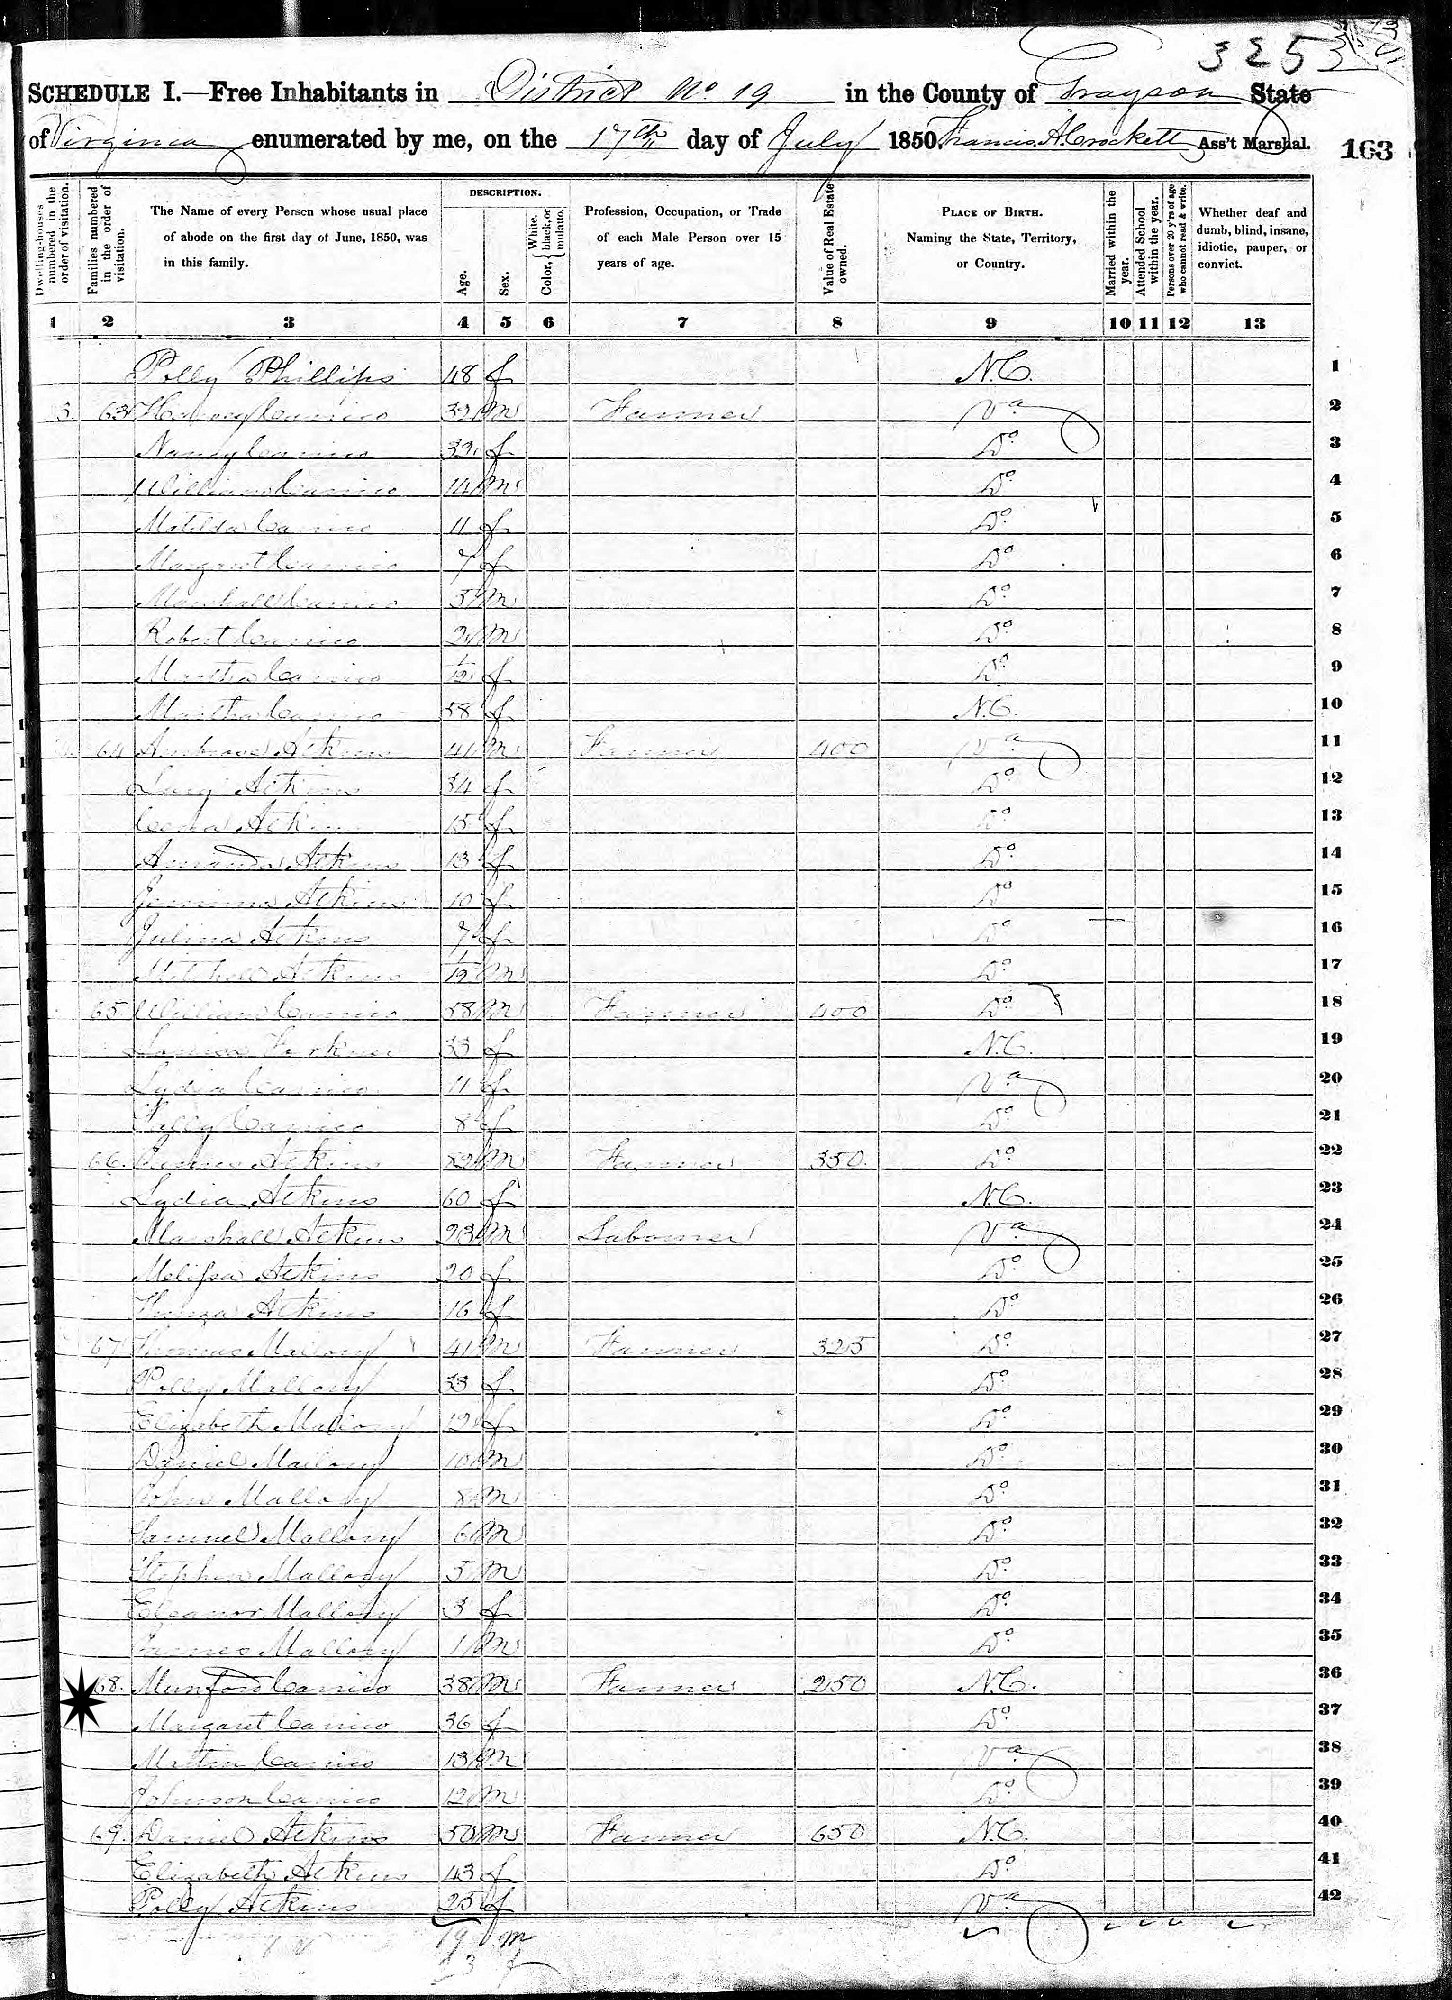 3253
SCHEDULE I.—Free Inhabitants in District No 19 in the County of Grayson State
of Virginia enumerated by me, on the 17th day of July 1850. Francis A. Crockett Ass't Marshal.
163
Dwelling-houses numbered in the order of visitation.
Families numbered in the order of visitation.
The Name of every Person whose usual place of abode on the first day of June, 1850, was in this family.
DESCRIPTION.
Age.
Sex.
Color, White, black, or mulatto.
Profession, Occupation, or Trade of each Male Person over 15 years of age.
Value of Real Estate owned.
PLACE OF BIRTH. Naming the State, Territory, or Country.
Married within the year.
Attended School within the year.
Persons over 20 y'rs of age who cannot read & write.
Whether deaf and dumb, blind, insane, idiotic, pauper, or convict.
1 2 3 4 5 6 7 8 9 10 11 12 13
Polly Phillips 48 f N.C. 1
63 Canico 32 m Farmer Va 2
Nancy Canico 32 f Do 3
William Canico 14 m Do 4
Matilda Canico 11 f Do 5
Margaret Canico 7 f Do 6
Marshall Canico 5 m Do 7
Robert Canico 2 m Do 8
Martha Canico f Do 9
Martha Canico 38 f N.C. 10
64 Ambrose Atkins 41 m Farmer 400 Va 11
Atkins 34 f Do 12
Atkins 15 f Do 13
Amanda Atkins 13 f Do 14
Jemima Atkins 10 f Do 15
Julina Atkins 7 f Do 16
Mitchell Atkins m Do 17
65 William Canico 58 m Farmer 400 Do 18
Louisa 33 f N.C. 19
Lydia Canico 11 f Va 20
Canico 8 f Do 21
66. Atkins m Farmer 350. Do 22
Lydia Atkins 60 f N.C. 23
Marshall Atkins 23 m Labourer Va 24
Melissa Atkins 20 f Do 25
Atkins 16 f Do 26
67 Thomas Mallory 41 m Farmer 325 Do 27
Polly Mallory 33 f Do 28
Elizabeth Mallory 12 f Do 29
Daniel Mallory 10 m Do 30
John Mallory 8 m Do 31
Samuel Mallory 6 m Do 32
Stephen Mallory 5 m Do 33
Eleanor Mallory 3 f Do 34
James Mallory 1 m Do 35
68. Munford Canico 38 m Farmer 250 N.C. 36
Margaret Canico 36 f Do 37
Martin Canico 13 m Va 38
Johnson Canico 12 m Do 39
69. Daniel Atkins 50 m Farmer 650 N.C. 40
Elizabeth Atkins 43 f Do 41
Polly Atkins 25 f Va 42
19 m
23 f